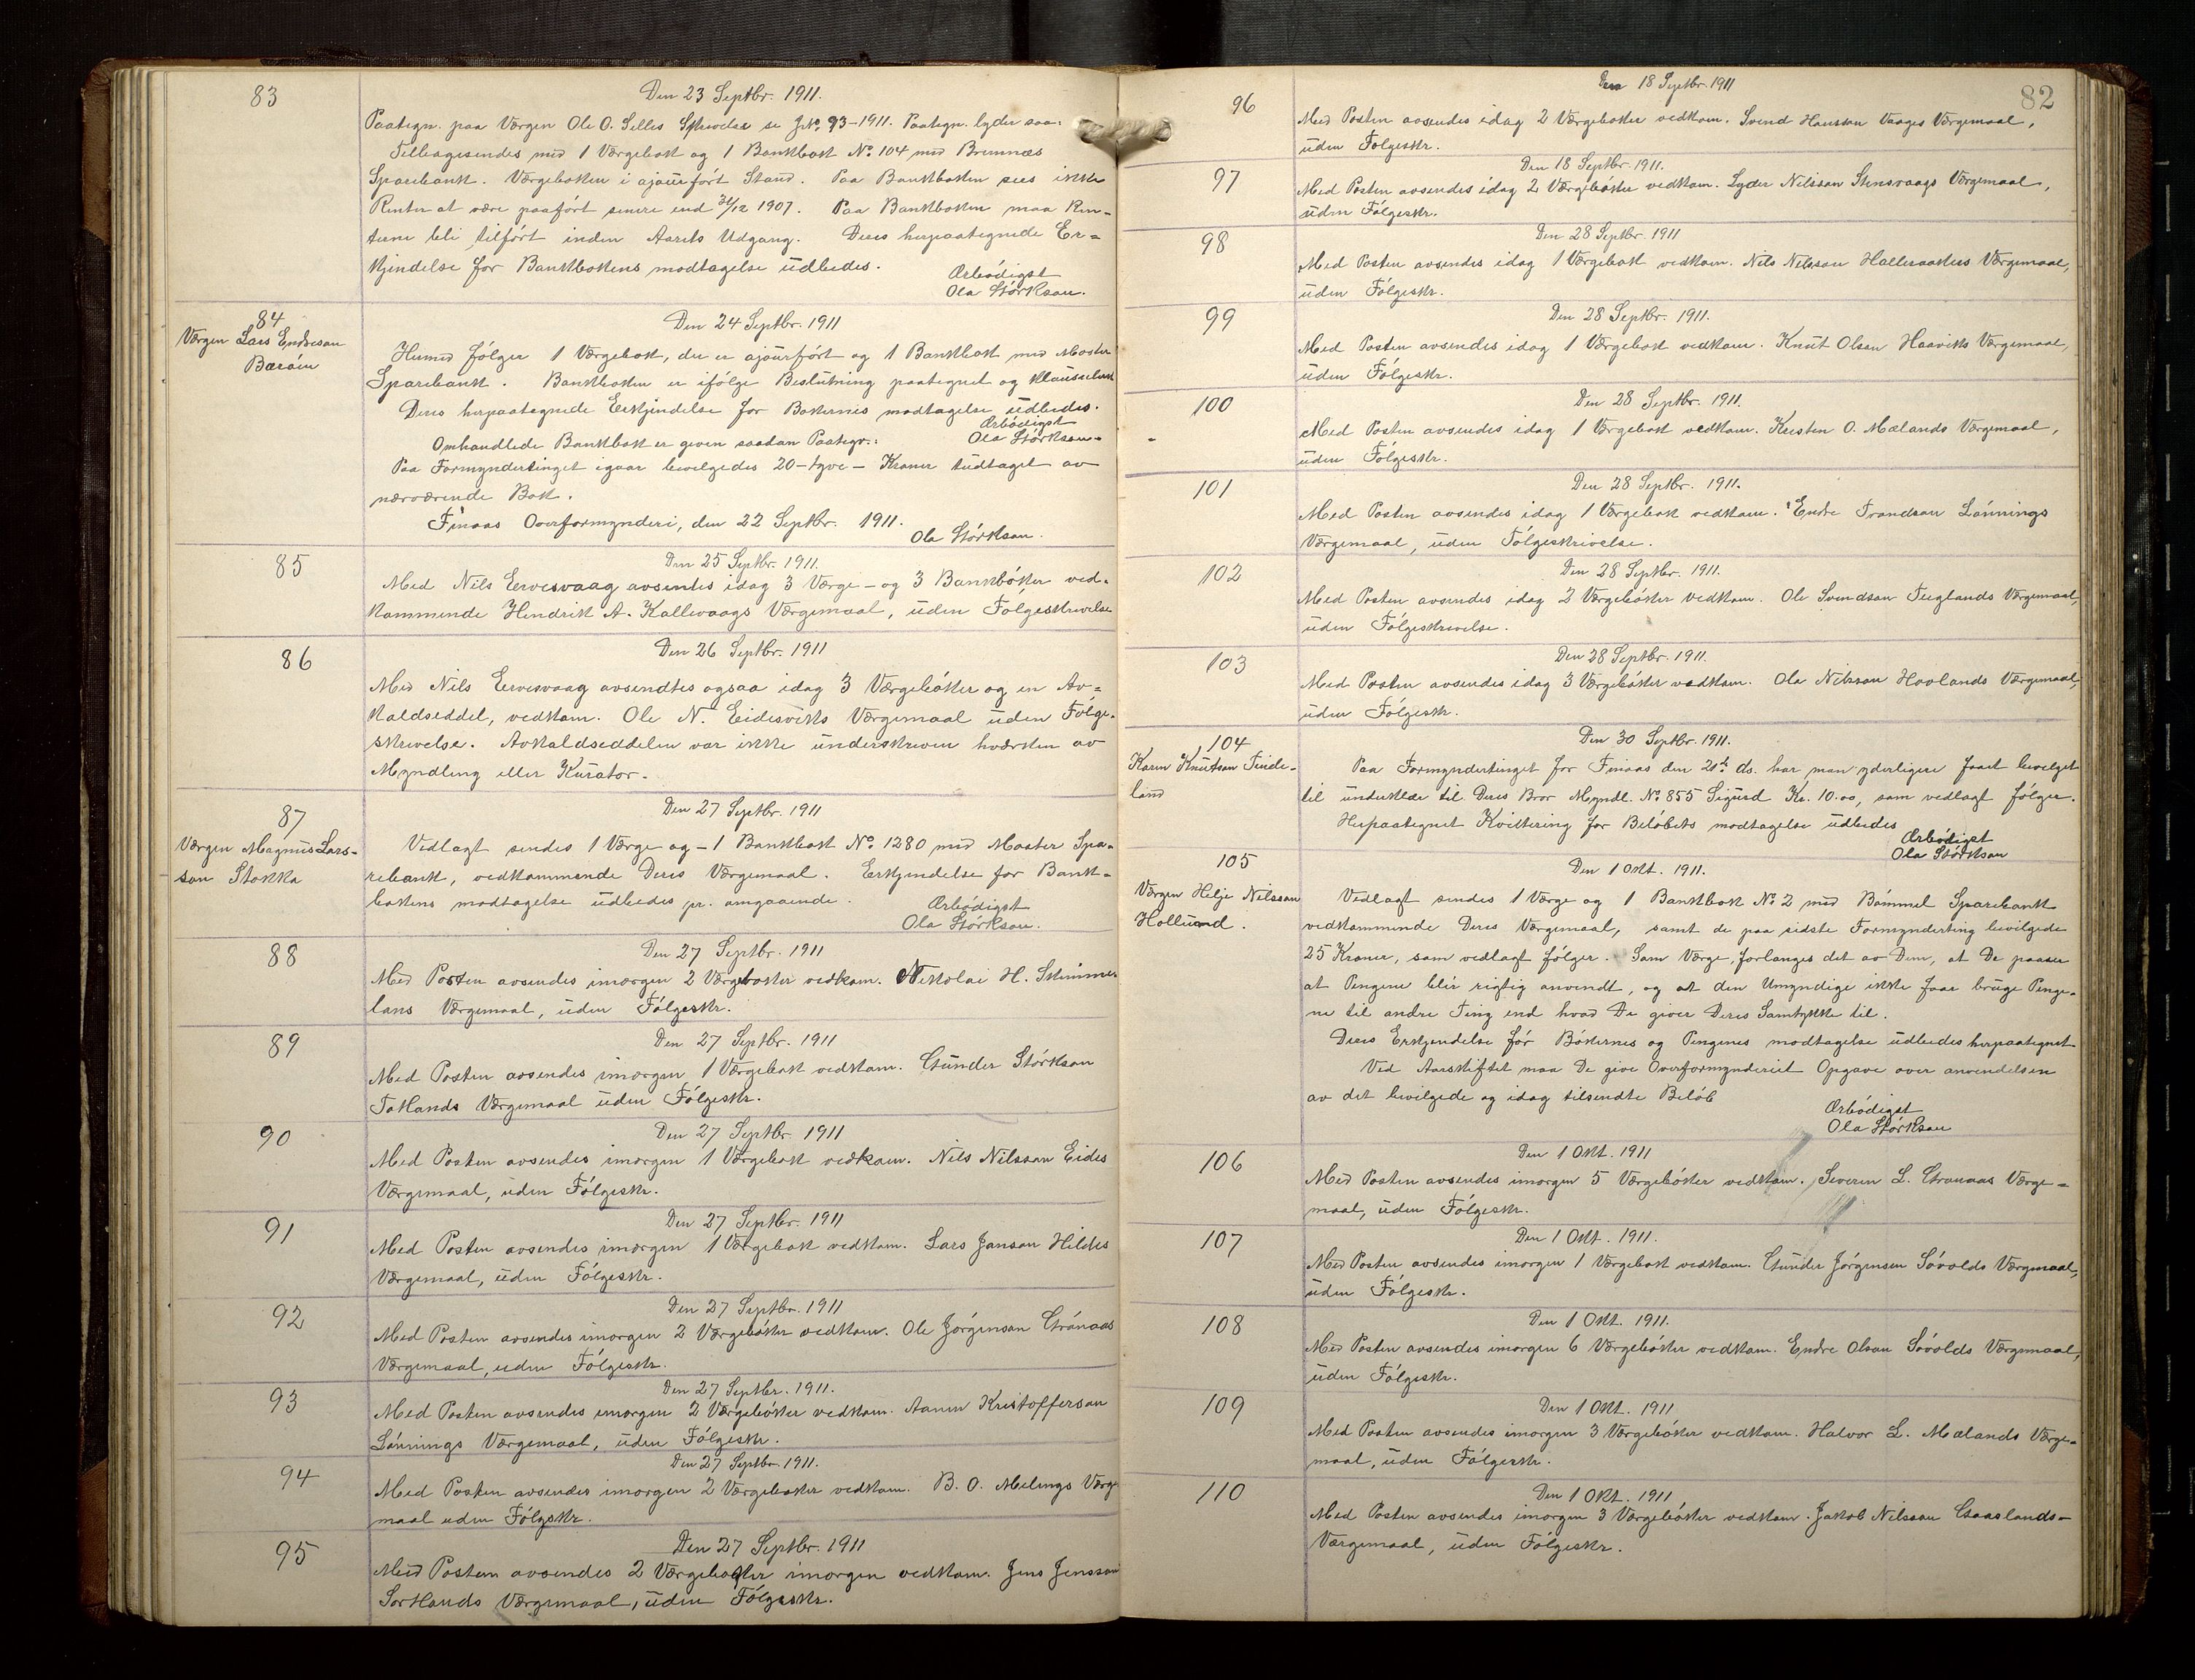 83
Den 23 Septbr. 1911.
Paategn. paa Værgen Ole O. Selles Skrivelse se J.No. 93-1911. Paategn. lyder saa:
Tilbagesendes med 1 Værgebok og 1 Bankbok No. 104 med Bremnæs
Sparebank. Værgeboken i ajourført Stand. Paa Bankboken sees ikke
Renter at være paaført senere end 31/12 1907. Paa Bankboken maa Ren-
terne bli tilført inden Aarets Udgang. Deres herpaategnede Er-
kjendelse for Bankbokens modtagelse udbedes.
Ærbødigst
Ola Størkson.
84
Værgen Lars Endreson
Børøen
Den 24 Septbr. 1911
Hermed følger 1 Værgebok, der er ajourført og 1 Bankbok med Moster
Sparebank. Bankboken er ifølge Beslutning paategnet og klausuleret
Deres herpaategnede Erkjendelse for Bøkernes modtagelse udbedes.
Ærbødigst
Ola Størkson.
Omhandlede Bankbok er given saadan Paategn.:
Paa Formyndertinget igaar bevilgedes 20-tyve- Kroner udtaget av
nærværende Bok.
Finaas Overformynderi, den 22 Septbr. 1911.
Ola Størkson.
85
Den 25 Septbr. 1911.
Med Nils Ervesvaag avsendtes idag 3 Værge- og 3 Bankbøker ved-
kommende Hendrik A. Kallevaags Værgemaal, uden Følgeskrivelse
86
Den 26 Septbr. 1911
Med Nils Ervesvaag avsendtes ogsaa idag 3 Værgebøker og en Av-
kaldseddel, vedkom. Ole N. Eidesviks Værgemaal uden Følge-
skrivelse. Avkaldseddelen var ikke underskreven hverken av
Myndling eller Kurator.
87
Værgen Magnus Lars-
son Stokka
Den 27 Septbr. 1911
Vedlagt sendes 1 Værge og - 1 Bankbok No. 1280 med Moster Spa-
rebank, vedkommende Deres Værgemaal. Erkjendelse for Bank-
bokens modtagelse udbedes pr. omgaaende.
Ærbødigst
Ola Størkson.
88
Den 27 Septbr. 1911
Med Posten avsendes imorgen 2 Værgebøker vedkom. Nikolai H. Skimme-
lans Værgemaal, uden Følgeskr.
89
Den 27 Septbr. 1911
Med Posten avsendes imorgen 1 Værgebok vedkom. Gunder Størkson
Totlands Værgemaal uden Følgeskr.
90
Den 27 Septbr. 1911
Med Posten avsendes imorgen 1 Værgebok vedkom. Nils Nilsson Eides
Værgemaal, uden Følgeskr.
91
Den 27 Septbr. 1911
Med Posten avsendes imorgen 1 Værgebok vedkom. Lars Janson Hildes
Værgemaal, uden Følgeskr.
92
Den 27 Septbr. 1911
Med Posten avsendes imorgen 2 Værgebøker vedkom. Ole Jørgenson Grønaas
Værgemaal, uden Følgeskr.
93
Den 27 Septbr. 1911.
Med Posten avsendes imorgen 2 Værgebøker vedkom. Aanen Kristofferson
Lønnings Værgemaal, uden Følgeskr.
94
Den 27 Septbr. 1911.
Med Posten avsendes imorgen 2 Værgebøker vedkom. B. O. Melings Værge
maal uden Følgeskr.
95
Den 27 Septbr. 1911
Med Posten avsendes 2 Værgebøker imorgen vedkom. Jens Jensson
Sortlands Værgemaal, uden Følgeskr.
82
96
Den 18 Septbr. 1911
Med Posten avsendes idag 2 Værgebøker vedkom. Svend Hansson Vaages Værgemaal,
uden Følgeskr.
97
Den 18 Septbr. 1911.
Med Posten avsendes idag 2 Værgebøker vedkom. Lyder Nilsson Stensvaags Værgemaal,
uden Følgeskr.
98
Den 28 Septbr. 1911
Med Posten avsendes idag 1 Værgebok vedkom. Nils Nilsson Halleraakers Værgemaal,
uden Følgeskr.
99
Den 28 Septbr. 1911.
Med Posten avsendes idag 1 Værgebok vedkom. Knut Olsen Haaviks Værgemaal,
uden Følgeskr.
100
Den 28 Septbr. 1911.
Med Posten avsendes idag 1 Værgebok vedkom. Kristen O. Mælands Værgemaal,
uden Følgeskr.
101
Den 28 Septbr. 1911.
Med Posten avsendes idag 1 Værgebok vedkom. Endre Trondson Lønnings
Værgemaal, uden Følgeskrivelse.
102
Den 28 Septbr. 1911.
Med Posten avsendes idag 2 Værgebøker vedkom. Ole Svendson Fuglands Værgemaal,
uden Følgeskrivelse.
103
Den 28 Septbr. 1911.
Med Posten avsendes idag 3 Værgebøker vedkom. Ola Nilsson Hovlands Værgemaal,
uden Følgeskr.
104
Karen Knutson Tinde-
land
Den 30 Septbr. 1911.
Paa Formyndertinget for Finaas den 21de ds. har man yderligere faaet bevilget
til underklær til Deres Bror Myndl. No. 855 Sigurd Kr. 10.00, som vedlagt følger.
Herpaategnet Kvittering for Beløbets modtagelse udbedes
Ærbødigst
Ola Størkson
105
Værgen Helje Nilsson
Hollund.
Den 1 Okt. 1911.
Vedlagt sendes 1 Værge og 1 Bankbok No. 2 med Bømmel Sparebank
vedkommende Deres Værgemaal, samt de paa sidste Formynderting bevilgede
25 Kroner, som vedlagt følger. Som Værge, forlanges det av Dem, at De paaser
at Pengene blir rigtig anvendt, og at den Umyndige ikke faar bruge Penge-
ne til andre Ting end hvad De giver Deres Samtykke til.
Deres Erkjendelse for Bøkernes og Pengenes modtagelse udbedes herpaategnet
Ved Aarskiftet maa De give Overformynderiet Opgave over anvendelsen
av det bevilgede og idag tilsendte Beløb
Ærbødigst
Ola Størkson
106
Den 1 Okt. 1911
Med Posten avsendes imorgen 5 Værgebøker vedkom. Severin L. Grønaas Værge-
maal, uden Følgeskr.
107
Den 1 Okt. 1911.
Med Posten avsendes imorgen 1 Værgebok vedkom. Gunder Jørgensen Søvolds Værgemaal,
uden Følgeskr.
108
Den 1 Okt. 1911.
Med Posten avsendes imorgen 6 Værgebøker vedkom. Endre Olson Søvolds Værgemaal,
uden Følgeskr.
109
Den 1 Okt. 1911
Med Posten avsendes imorgen 3 Værgebøker vedkom. Halvor L. Mælands Værge-
maal, uden Følgeskr.
110
Den 1 Okt. 1911
Med Posten avsendes imorgen 3 Værgebøker vedkom. Jakob Nilsson Gaaslands-
Værgemaal, uden Følgeskr.